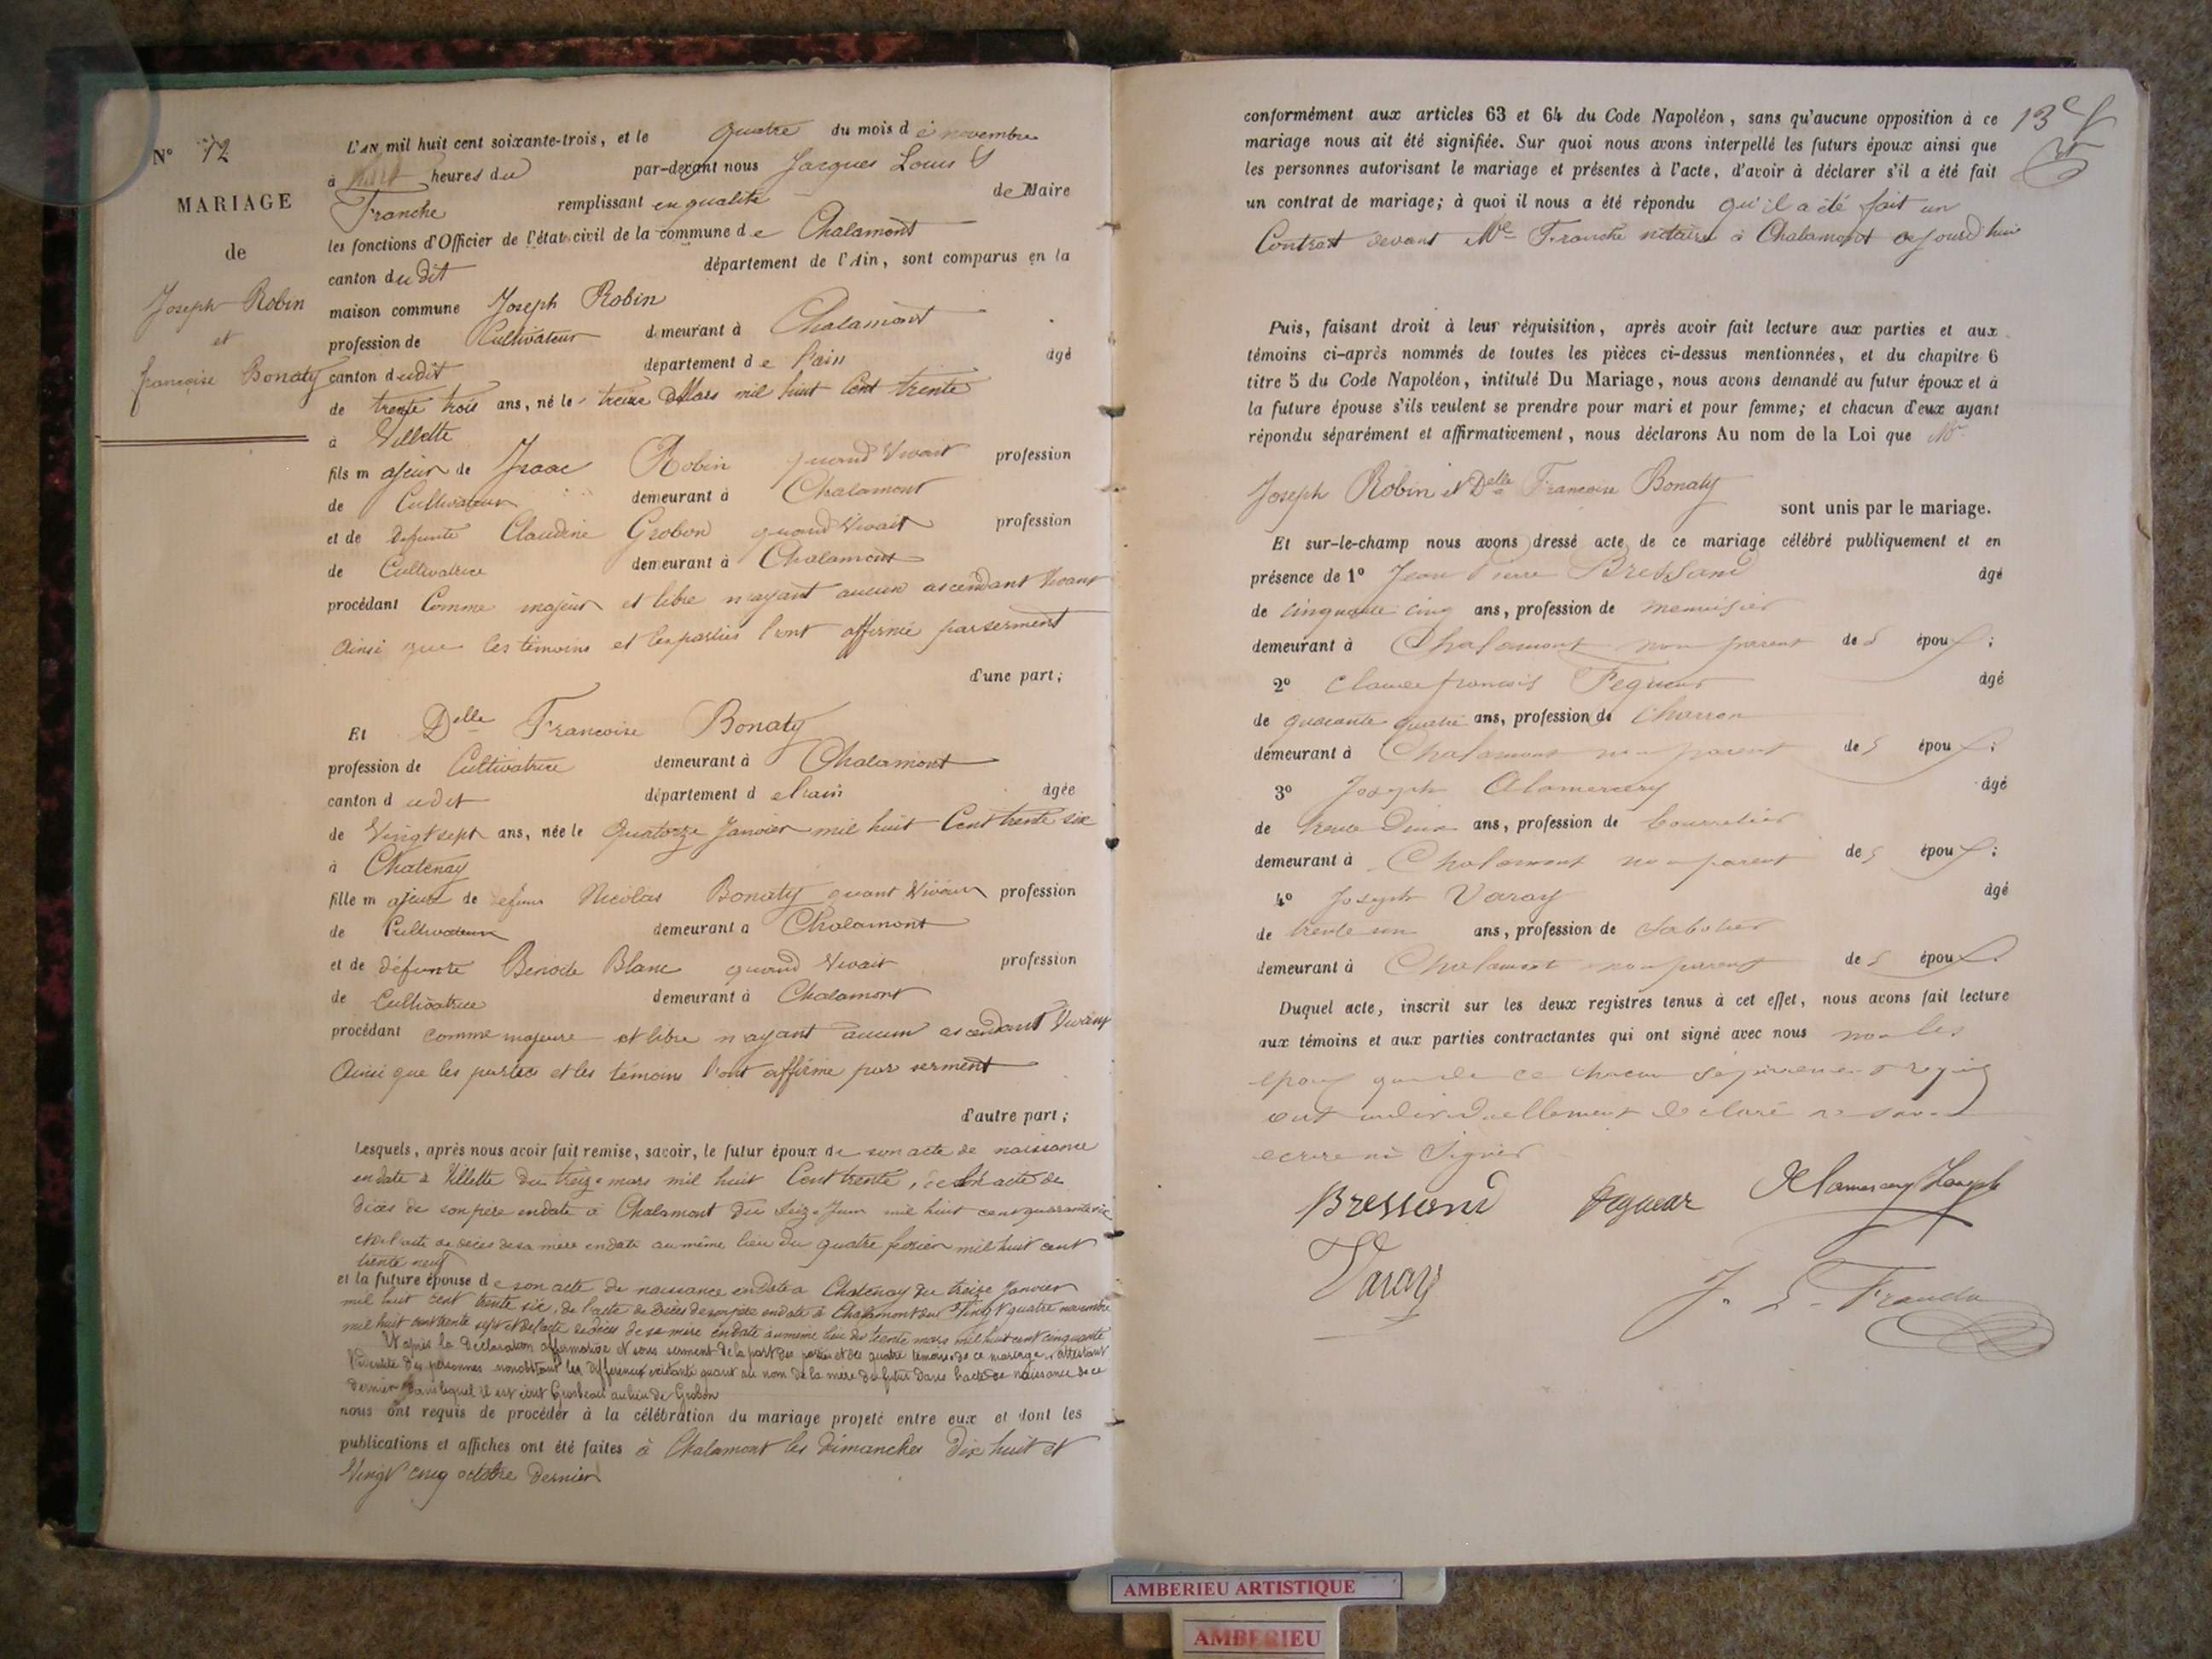 N° 12
MARIAGE
de
Joseph Robin
et
françoise Bonaty
L'AN mil huit cent soixante-trois, et le quatre du mois de novembre
à heures du par-devant nous Jacques Louis
Franche remplissant en qualité de Maire
les fonctions d'Officier de l'état civil de la commune de Chalamont
canton dudit département de l'Ain, sont comparus en la
maison commune Joseph Robin
profession de Cultivateur demeurant à Chalamont
canton dudit département de l'ain âgé
de trente trois ans, né le treize Mars mil huit Cent trente
à Villette
fils majeur de Isaac Robin quand Vivait profession
de Cultivateur demeurant à Chalamont
et de defunte Claudine Grobon quand Vivait profession
de Cultivatrice demeurant à Chalamont
procédant Comme majeur et libre n'ayant aucun ascendant Vivant
Ainsi que les témoins et les parties l'ont affirmé par serment
d'une part;
Et Delle Francoise Bonaty
profession de Cultivatrice demeurant à Chalamont
canton dudit département de l'ain âgée
de Vingt sept ans, née le Quatorze Janvier mil huit Cent trente six
à Chatenay
fille majeure de defunt Nicolas Bonaty quant Vivait profession
de Cultivateur demeurant a Chalamont
et de défunte Benoite Blanc quand Vivait profession
de Cultivatrice demeurant à Chalamont
procédant comme majeure et libre n'ayant aucun ascendant Vivant
Ainsi que les parties et les témoins l'ont affirmé par serment
d'autre part;
Lesquels, après nous avoir fait remise, savoir, le futur époux de son acte de naissance
en date à Villette du treize mars mil huit Cent trente, de l'acte de
décès de son père en date à Chalamont du seize Juin mil huit cent quarante six
et de l'acte de décès de sa mère en date au même lieu du quatre fevrier mil huit cent
trente neuf
et la future épouse de son acte de naissance en date a Chatenay du treize Janvier
mil huit cent trente six, de l'acte de décès de son père en date à Chalamont du Vingt quatre novembre
mil huit cent trente sept et de l'acte de décès de sa mère en date au même lieu du trente mars mil huit cent cinquante
Et après la déclaration affirmative et sous serment de la part des parties et des quatre témoins de ce mariage, attestant
l'identité des personnes nonobstant les différences existants quant au nom de la mère du futur dans l'acte de naissance de ce
dernier dans lequel il est écrit Grosbeau au lieu de Grobon
nous ont requis de procéder à la célébration du mariage projeté entre eux et dont les
publications et affiches ont été faites à Chalamont les dimanches Dix huit et
Vingt cinq octobre dernier
conformément aux articles 63 et 64 du Code Napoléon, sans qu'aucune opposition à ce
mariage nous ait été signifiée. Sur quoi nous avons interpellé les futurs époux ainsi que
les personnes autorisant le mariage et présentes à l'acte, d'avoir à déclarer s'il a été fait
un contrat de mariage; à quoi il nous a été répondu qu'il a été fait un
Contrat devant Me Franche notaire à Chalamont ce jourd'hui
Puis, faisant droit à leur réquisition, après avoir fait lecture aux parties et aux
témoins ci-après nommés de toutes les pièces ci-dessus mentionnées, et du chapitre 6
titre 5 du Code Napoléon, intitulé Du Mariage, nous avons demandé au futur époux et à
la future épouse s'ils veulent se prendre pour mari et pour femme; et chacun d'eux ayant
répondu séparément et affirmativement, nous déclarons Au nom de la Loi que Mr
Joseph Robin et Delle Francoise Bonaty
sont unis par le mariage.
Et sur-le-champ nous avons dressé acte de ce mariage célébré publiquement et en
présence de 1° Jean Pierre Bressand âgé
de cinquante cinq ans, profession de menuisier
demeurant à Chalamont non parent des époux;
2° Claude francois Fegueur âgé
de quarante quatre ans, profession de Charron
demeurant à Chalamont non parent des époux;
3° Joseph Alamercery âgé
de trente Deux ans, profession de bourrelier
demeurant à Chalamont non parent des époux;
4° Joseph Varay âgé
de trente un ans, profession de Sabotier
demeurant à Chalamont non parent des époux.
Duquel acte, inscrit sur les deux registres tenus à cet effet, nous avons fait lecture
aux témoins et aux parties contractantes qui ont signé avec nous non les
époux qui de ce chacun séparement requis
ont individuellement declaré ne savoir
ecrire ni Signer
Bressand Fegueur Alamercery Joseph
Varay
J. L. Franche
AMBERIEU ARTISTIQUE
AMBERIEU